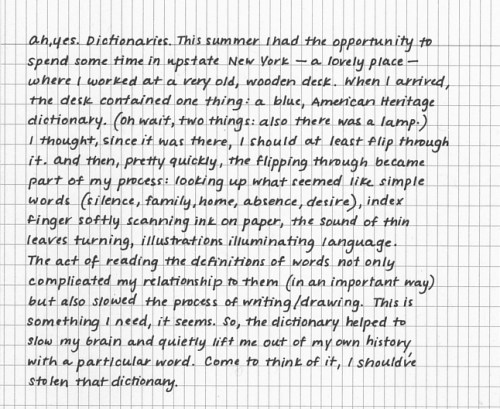 ah, yes. Dictionaries. This summer I had the opportunity to
spend some time in upstate New York — a lovely place —
where I worked at a very old, wooden desk. When I arrived,
the desk contained one thing: a blue, American Heritage
dictionary. (oh wait, two things: also there was a lamp.)
I thought, since it was there, I should at least flip through
it. and then, pretty quickly, the flipping through became
part of my process: looking up what seemed like simple
words (silence, family, home, absence, desire), index
finger softly scanning ink on paper, the sound of thin
leaves turning, illustrations illuminating language.
The act of reading the definitions of words not only
complicated my relationship to them (in an important way)
but also slowed the process of writing/drawing. This is
something I need, it seems. So, the dictionary helped to
slow my brain and quietly lift me out of my own history
with a particular word. Come to think of it, I should've
stolen that dictionary.